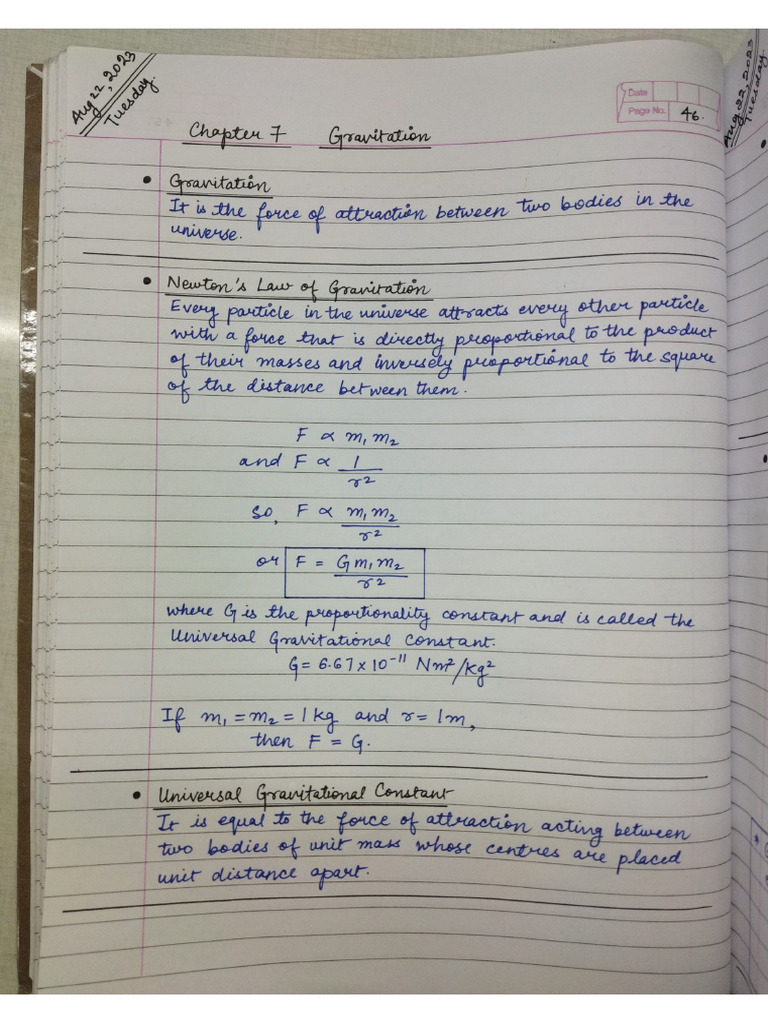 Aug 22, 2023
Tuesday.
Date
Page No. 46.
Chapter 7 Gravitation
• Gravitation
It is the force of attraction between two bodies in the
universe.
• Newton's Law of Gravitation
Every particle in the universe attracts every other particle
with a force that is directly proportional to the product
of their masses and inversely proportional to the square
of the distance between them.
F ∝ m₁m₂
and F ∝ 1/r²
so, F ∝ m₁m₂/r²
or F = Gm₁m₂/r²
where G is the proportionality constant and is called the
Universal Gravitational Constant.
G = 6.67 x 10⁻¹¹ Nm²/Kg²
If m₁ = m₂ = 1 kg and r = 1m,
then F = G.
• Universal Gravitational Constant
It is equal to the force of attraction acting between
two bodies of unit mass whose centres are placed
unit distance apart.
Aug 22, 2023
Tuesday